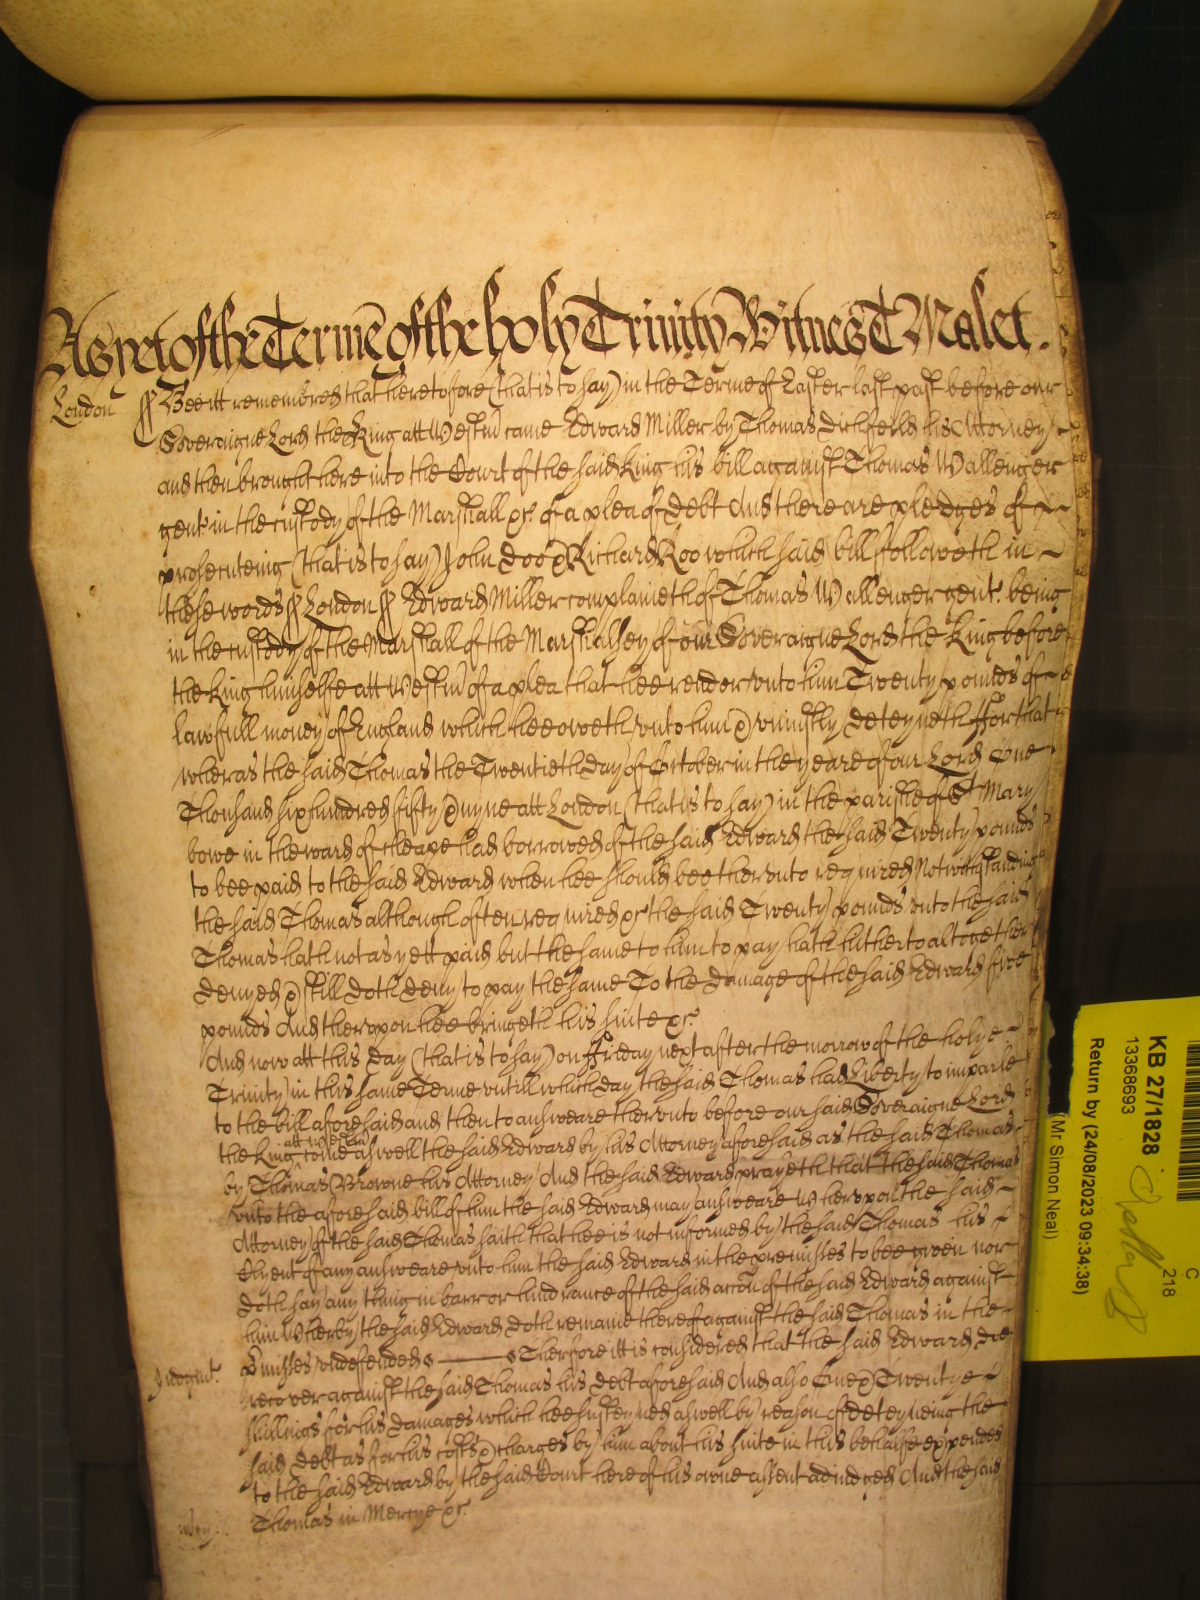 As yet of the Terme of the holy Trinity Witnes T Malet.
London ss Bee itt remembred that heretofore (that is to say) in the Terme of Easter last past before our
Soveraigne Lord the King att Westm̄ came Edward Miller by Thomas Dichfeild his Attorney
and then brought here into the Court of the said King his bill against Thomas Wallenger
gent. in the custody of the Marshall &c. of a plea of debt And there are pledges of
prosecuteing (that is to say) John Doo & Richard Roo which said bill followeth in
these words ss London ss Edward Miller complaineth of Thomas Wallenger gent. being
in the custody of the Marshall of the Marshalsey of our Soveraigne Lord the King before
the King himselfe att Westm̄ of a plea that hee render unto him Twenty pounds of
lawfull money of England which hee oweth unto him & uniustly deteyneth ffor that
wheras the said Thomas the Twentieth day of October in the yeare of our Lord One
Thousand six hundred fifty & nyne att London (that is to say) in the parishe of St Mary
bowe in the ward of cheape had borrowed of the said Edward the said Twenty pounds
to bee paid to the said Edward when hee should bee therunto required Notwithstanding
the said Thomas although often required &c the said Twenty pounds unto the said
Thomas hath not as yett paid but the same to him to pay hath hitherto altogether
denyed & still doth deny to pay the same To the damage of the said Edward five
pounds And therupon hee bringeth his suite &c.
And now att this day (that is to say) on ffriday next after the morrow of the holye
Trinity in this same Terme untill which day the said Thomas had Liberty to imparle
to the bill aforesaid and then to answeare therunto before our said Soveraigne Lord
the King att Westm̄ come aswell the said Edward by his Attorney aforesaid as the said Thomas
by Thomas Browne his Attorney And the said Edward prayeth that the said Thomas
unto the aforesaid bill of him the said Edward may answeare Wherupon the said
Attorney of the said Thomas saith that hee is not informed by the said Thomas his
Clyent of any answeare unto him the said Edward in the premisses to bee given nor
doth say any thing in barr or hindrance of the said acc̄on of the said Edward against
him Wherby the said Edward doth remaine therof against the said Thomas in the
p̄misses undefended Therfore itt is considered that the said Edward doe
Judgmt. recover against the said Thomas his debt aforesaid And also One & Twentye
shillings for his damages which hee susteyned aswell by reason of deteyneing the
said debt as for his costs & charges by him about his suite in this behalfe expended
to the said Edward by the said Court here of his owne assent adiudged And the said
mercy Thomas in Mercye &c.
KB 27/1828
13368693
Return by (24/08/2023 09:34:38)
(Mr Simon Neal)
C
218